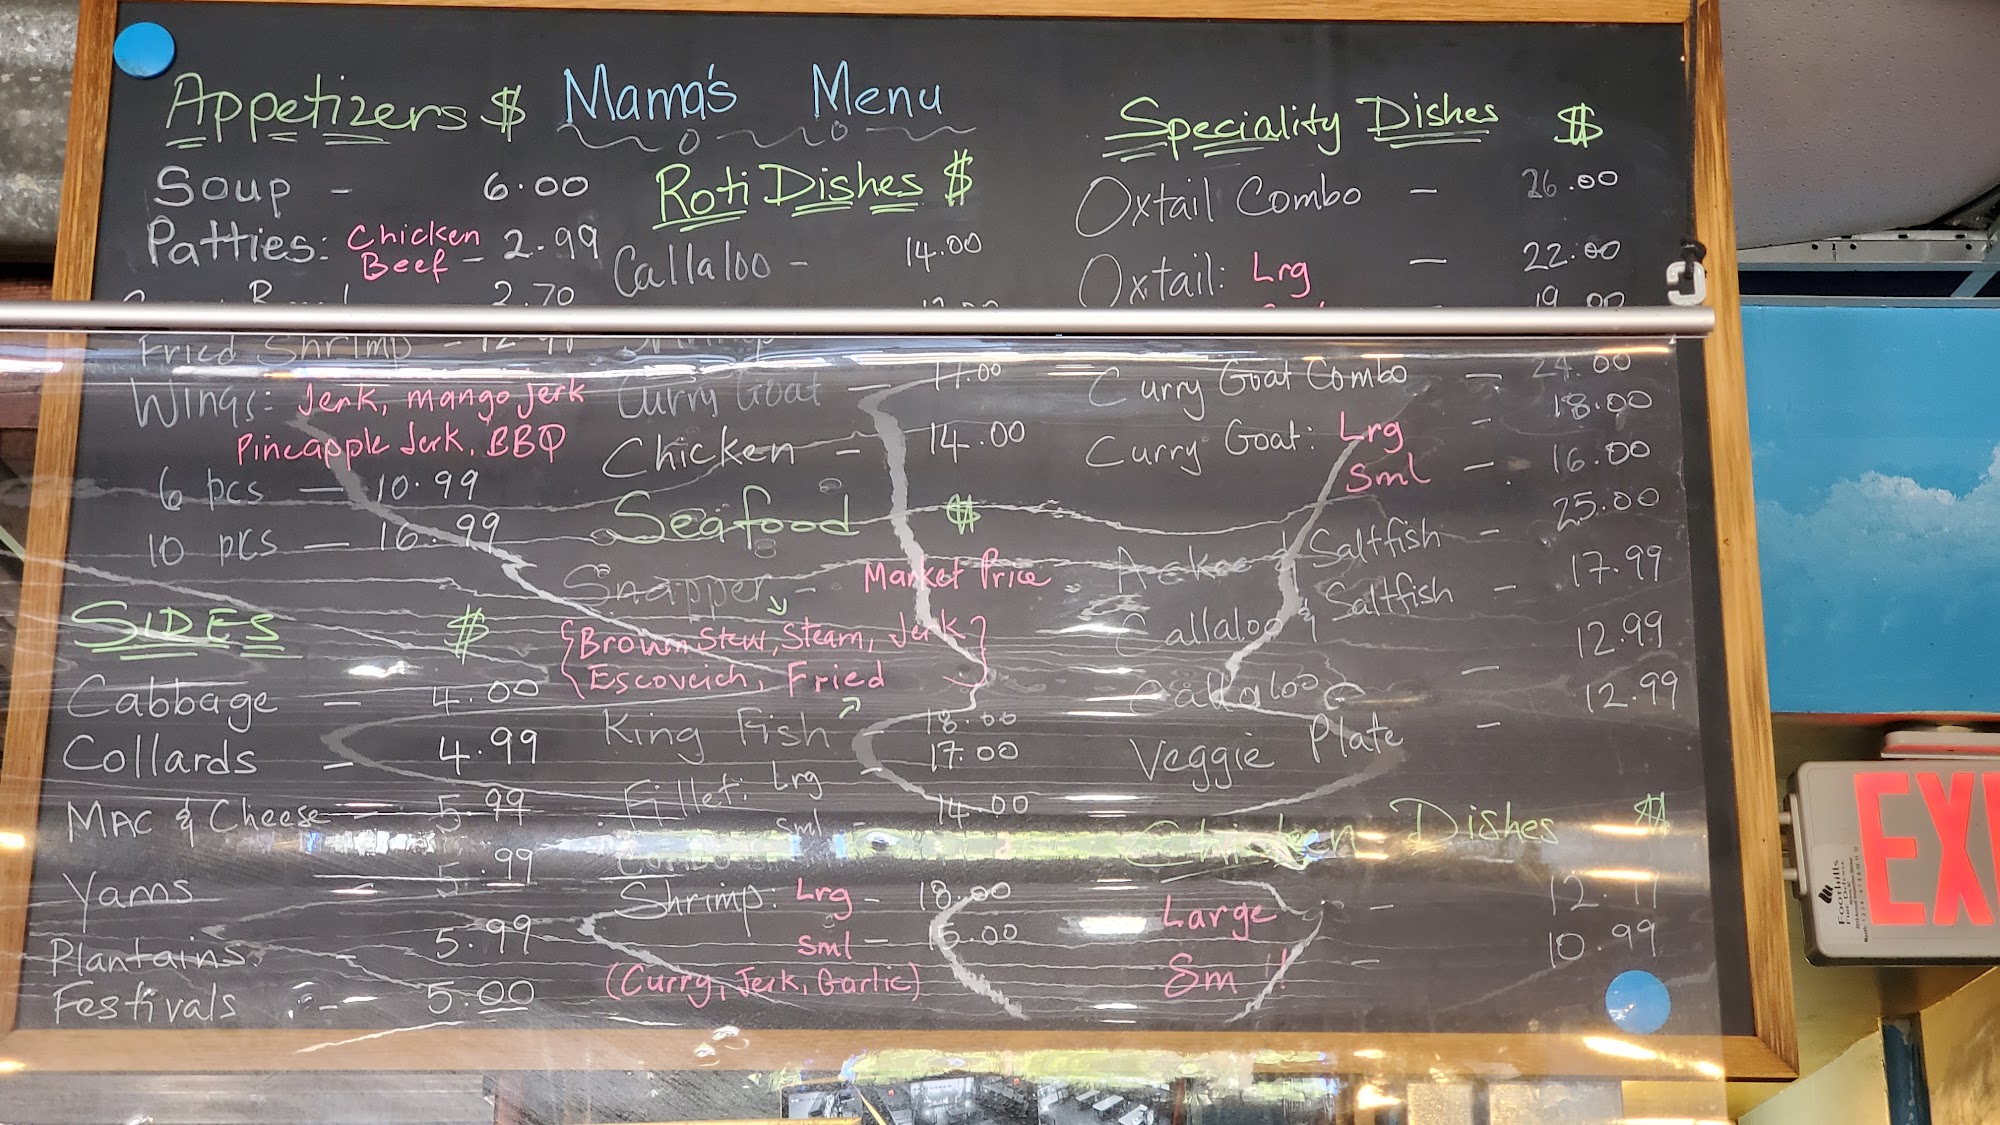 Mama's Menu
Appetizers $
Soup - 6.00
Patties: Chicken
Beef - 2.99
2.70
Fried Shrimp -
Wings: Jerk, mango Jerk
Pineapple Jerk, BBQ
6 pcs - 10.99
10 pcs - 16.99
SIDES $
Cabbage - 4.00
Collards - 4.99
MAC & Cheese - 5.99
Yams - 5.99
Plantains - 5.99
Festivals - 5.00
Roti Dishes $
Callaloo - 14.00
Curry Goat - 17.00
Chicken - 14.00
Seafood $
Snapper - Market Price
{Brown Stew, Steam, Jerk
Escoveich, Fried}
King Fish - 18.00
Fillet: Lrg - 17.00
Sml - 14.00
Shrimp: Lrg - 18.00
Sml - 15.00
(Curry, Jerk, Garlic)
Speciality Dishes $
Oxtail Combo - 26.00
Oxtail: Lrg - 22.00
19.00
Curry Goat Combo - 24.00
Curry Goat: Lrg - 18.00
Sml - 16.00
Ackee & Saltfish - 25.00
Callaloo & Saltfish - 17.99
Callaloo - 12.99
Veggie Plate - 12.99
Chicken Dishes $
Large -
Sm - 10.99
EXI